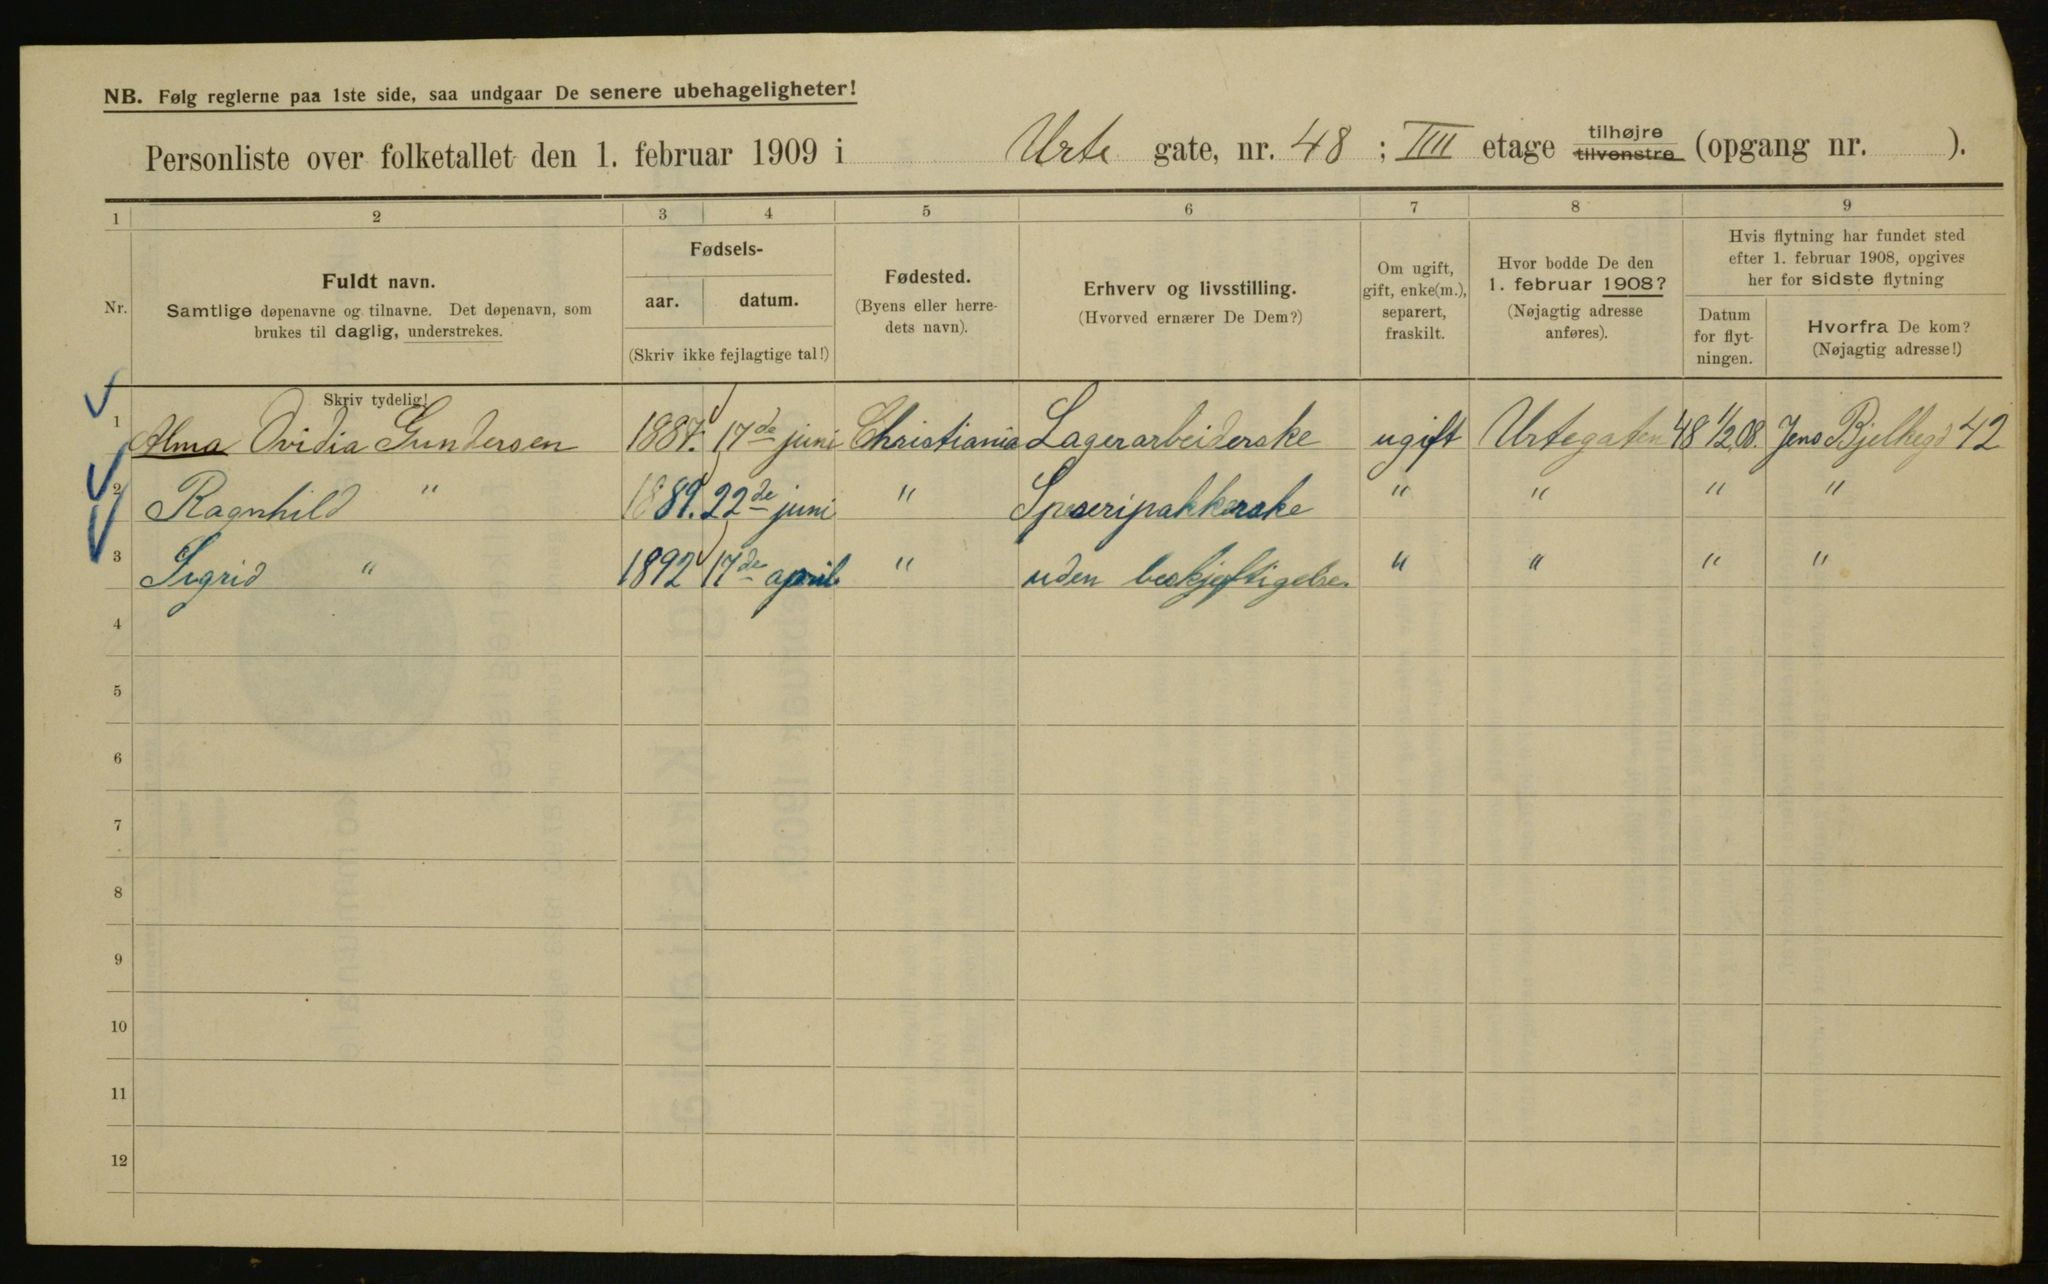 NB. Følg reglerne paa 1ste side, saa undgaar De senere ubehageligheter!
Personliste over folketallet den 1. februar 1909 i Urte gate, nr. 48 ; IIII etage tilhøjre tilvenstre (opgang nr. ).
1 2 3 4 5 6 7 8 9
Nr.
Fuldt navn.
Samtlige døpenavne og tilnavne. Det døpenavn, som
brukes til daglig, understrekes.
Fødsels-
aar. datum.
(Skriv ikke fejlagtige tal!)
Fødested.
(Byens eller herre-
dets navn).
Erhverv og livsstilling.
(Hvorved ernærer De Dem?)
Om ugift,
gift, enke(m.),
separert,
fraskilt.
Hvor bodde De den
1. februar 1908?
(Nøjagtig adresse
anføres).
Hvis flytning har fundet sted
efter 1. februar 1908, opgives
her for sidste flytning
Datum
for flyt-
ningen.
Hvorfra De kom?
(Nøjagtig adresse!)
Skriv tydelig!
1 Alma Ovidia Gundersen 1887. 17de juni Christiania Lagerarbeiderske ugift Urtegaten 48 1/2 08. Jens Bjelkegd 42
2 Ragnhild " 1889. 22de juni " Speseripakkerske " " " "
3 Sigrid " 1892 17de april " uden beskjeftigelse. " " " "
4
5
6
7
8
9
10
11
12